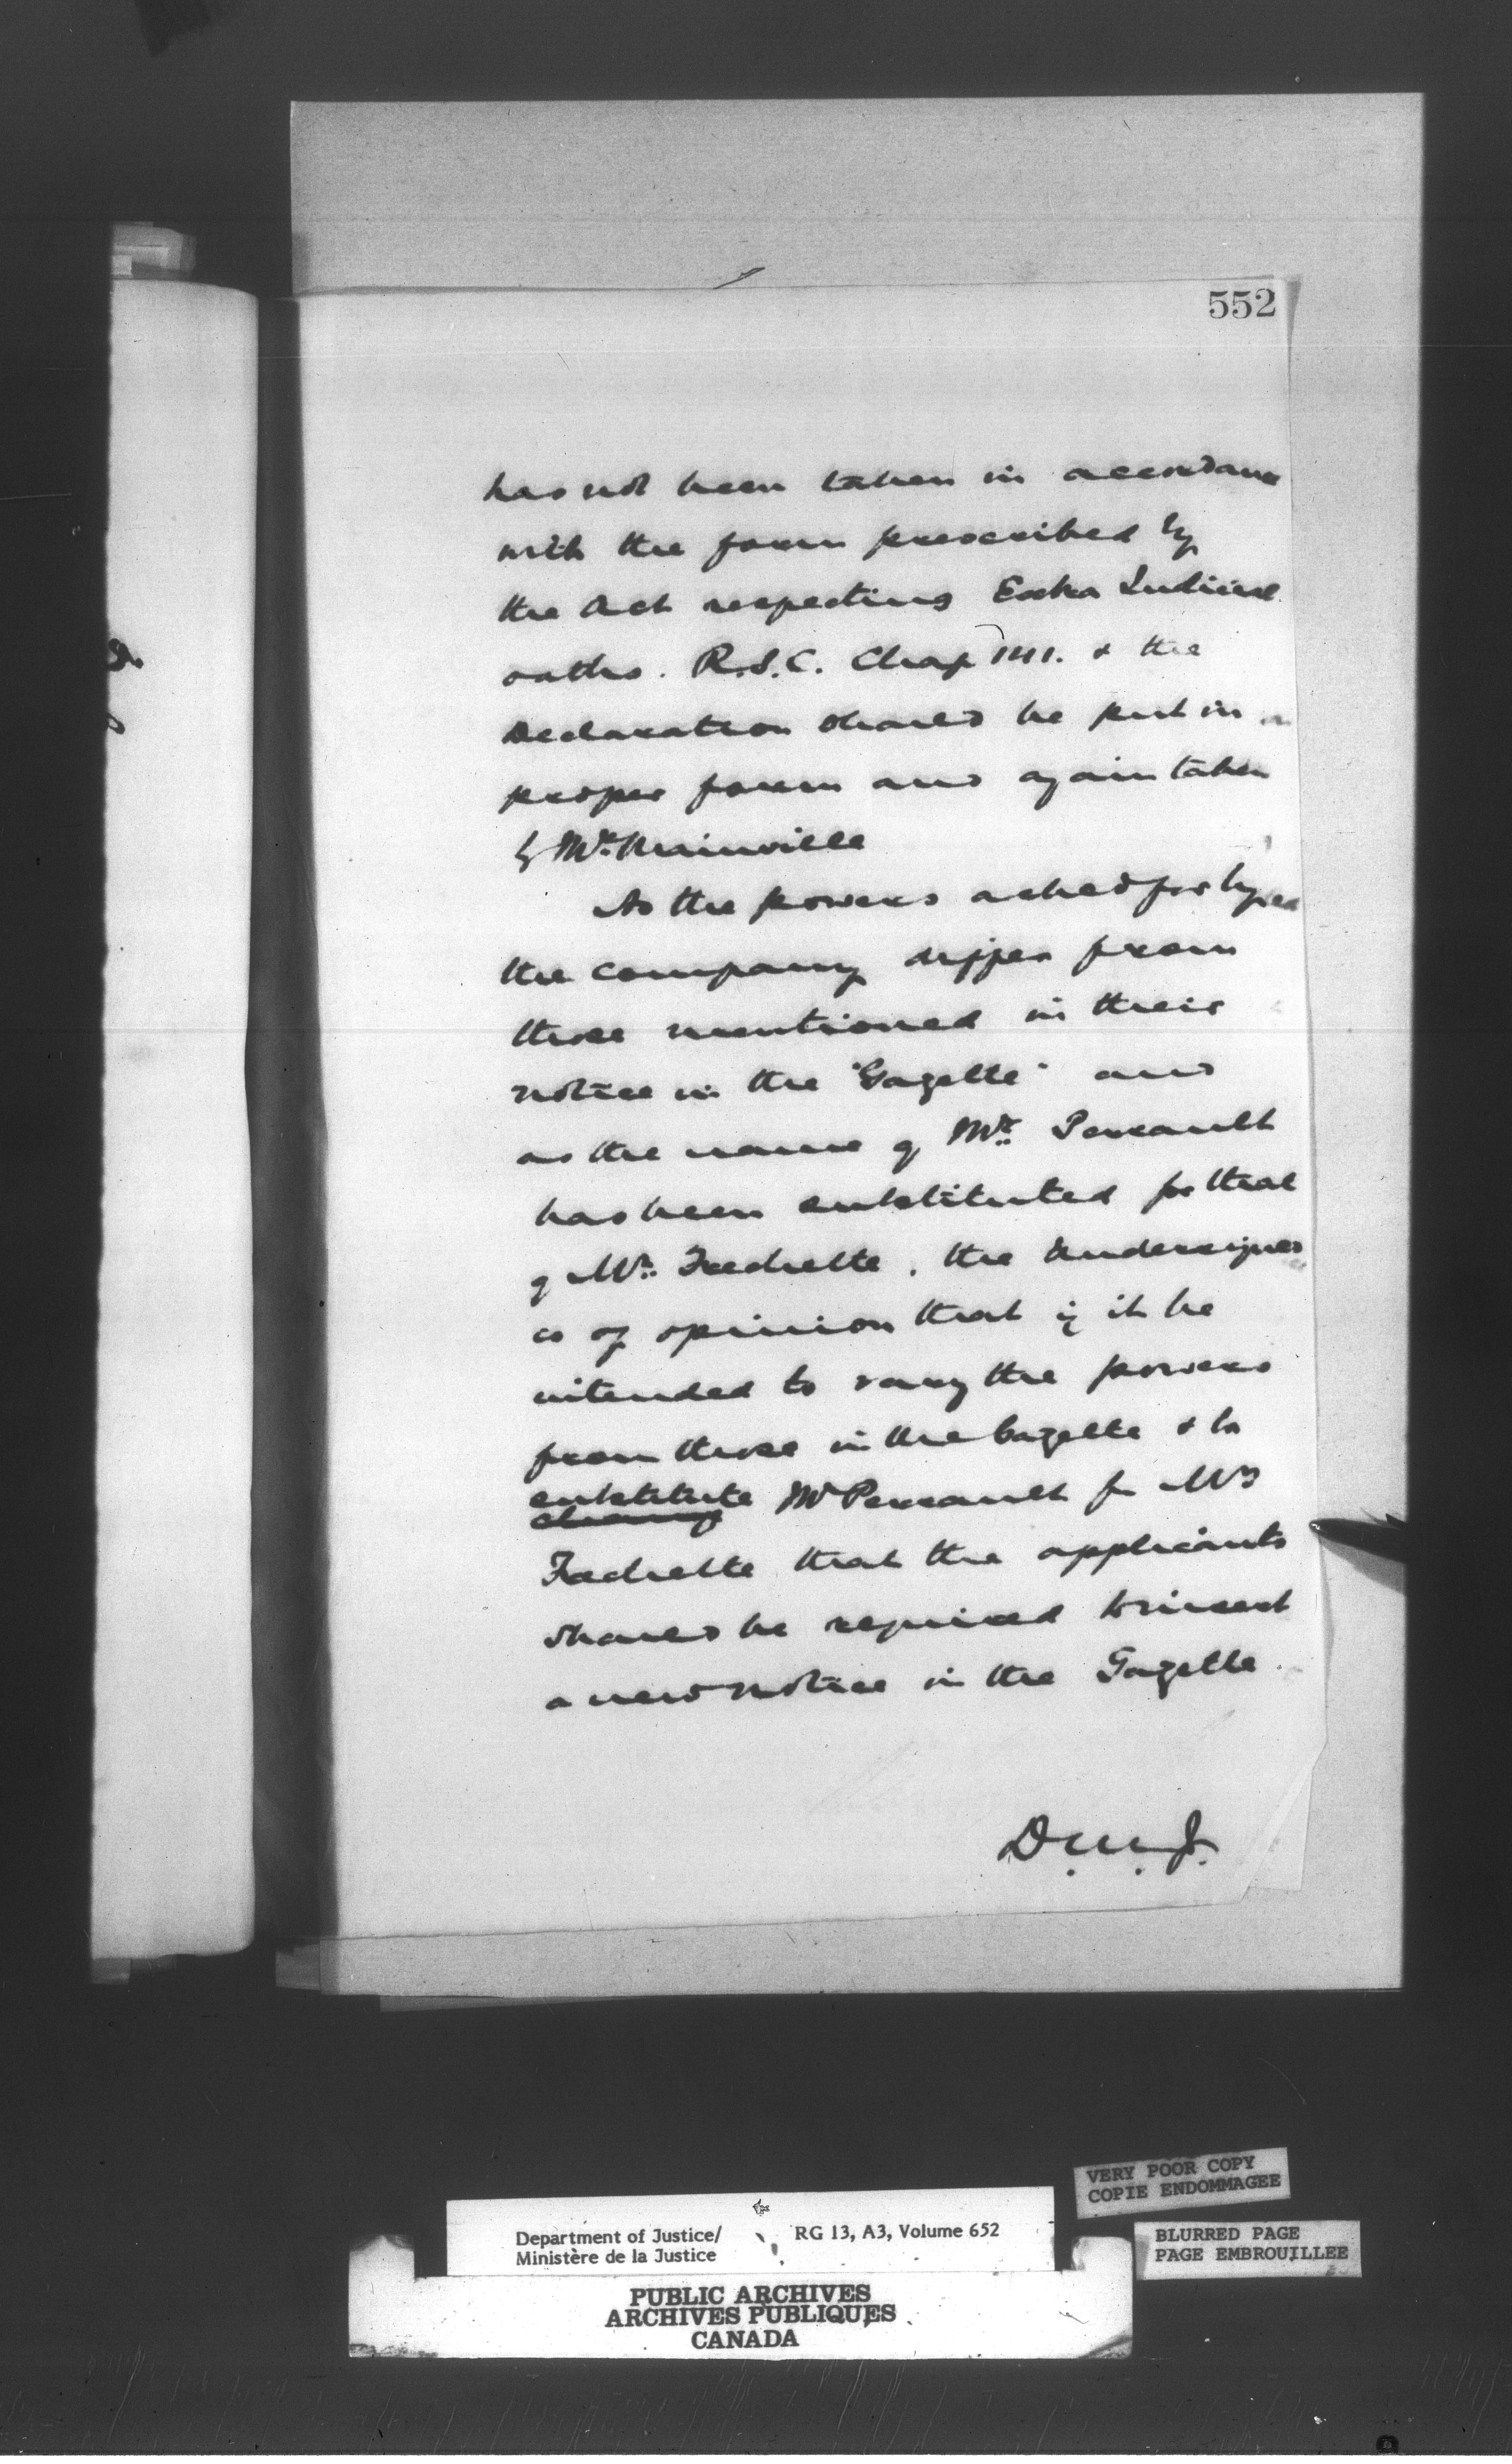 552
has not been taken in accordance
with the form prescribed by
the Act respecting Extra Judicial
oaths. R.S.C. Chap 141. & the
Declaration should be put in
proper form and again taken
by Mr. Mainville
As the powers asked for by
the company differ from
those mentioned in their
notice in the "Gazette" and
as the name of Mr. Perrault
has been substituted for that
of Mr. Frechette, the undersigned
is of opinion that if it be
intended to vary the powers
from those in the Gazette & to
substitute Mr Perrault for Mr
Frechette that the applicants
should be required to insert
a new notice in the Gazette.
D.M.J.
VERY POOR COPY
COPIE ENDOMMAGEE
Department of Justice/ RG 13, A3, Volume 652
Ministère de la Justice
BLURRED PAGE
PAGE EMBROUILLEE
PUBLIC ARCHIVES
ARCHIVES PUBLIQUES
CANADA